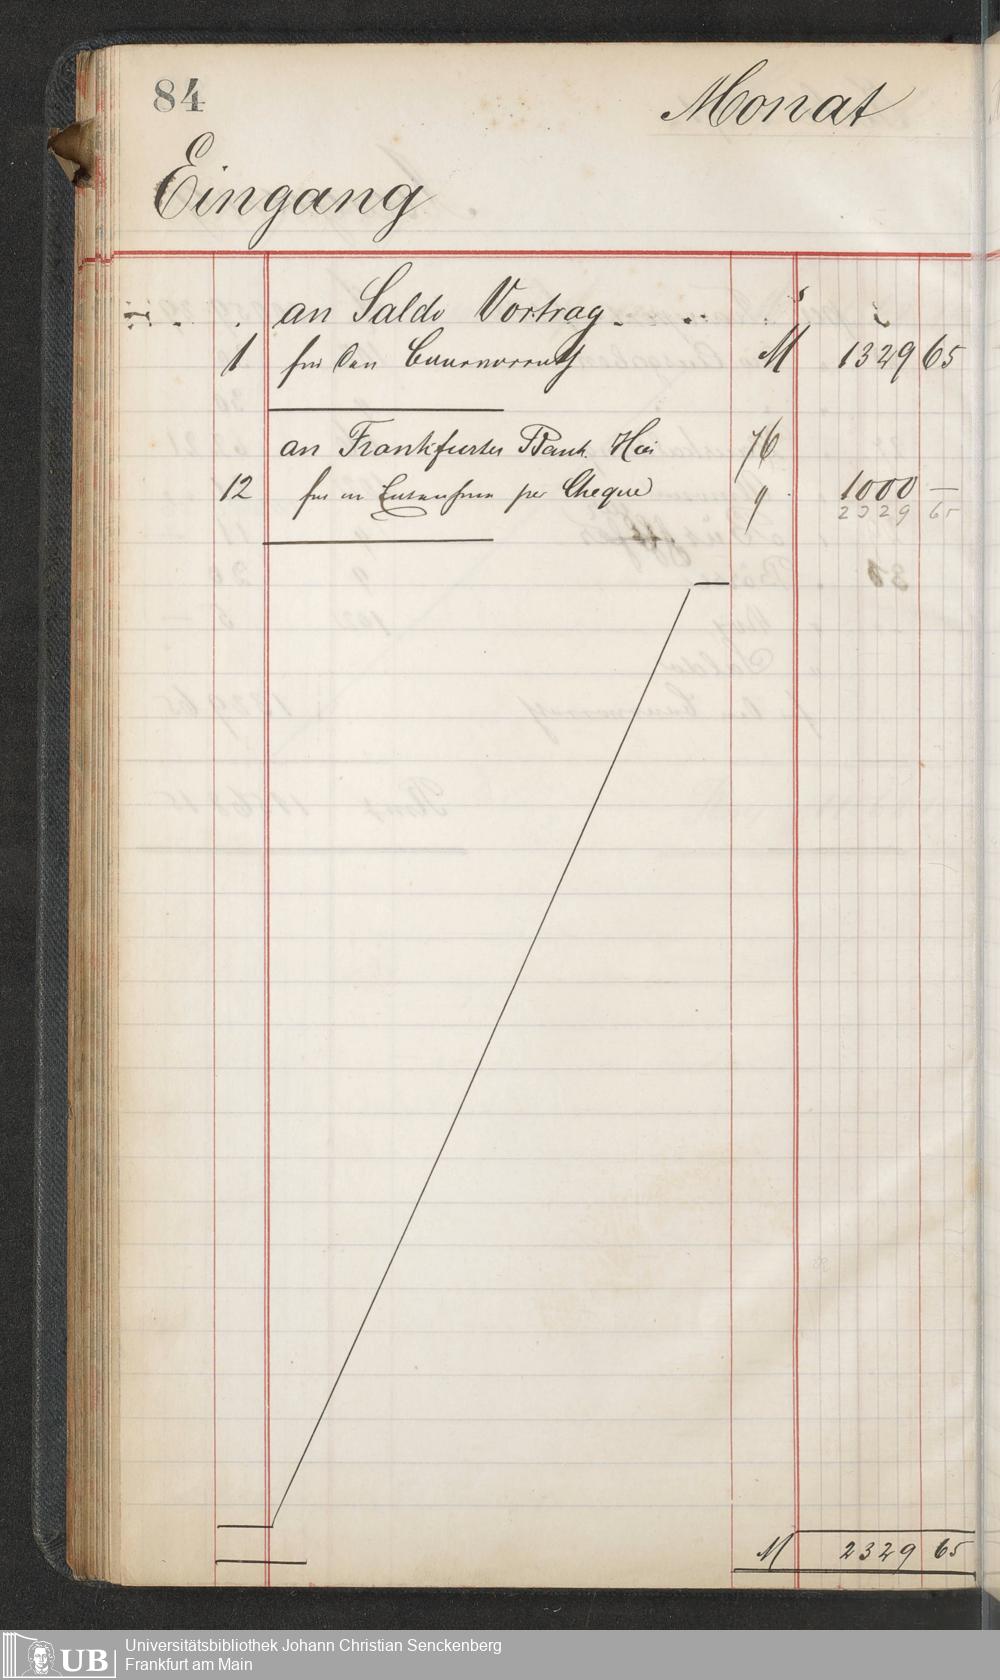 84
Monat
Eingang
an Saldo Vortrag
1 für den Baarvorrath M 1329 65
an Frankfurter Bank 76
12 per Cheque 1000 —
2329 65
M 2329 65
UB
Universitätsbibliothek Johann Christian Senckenberg
Frankfurt am Main